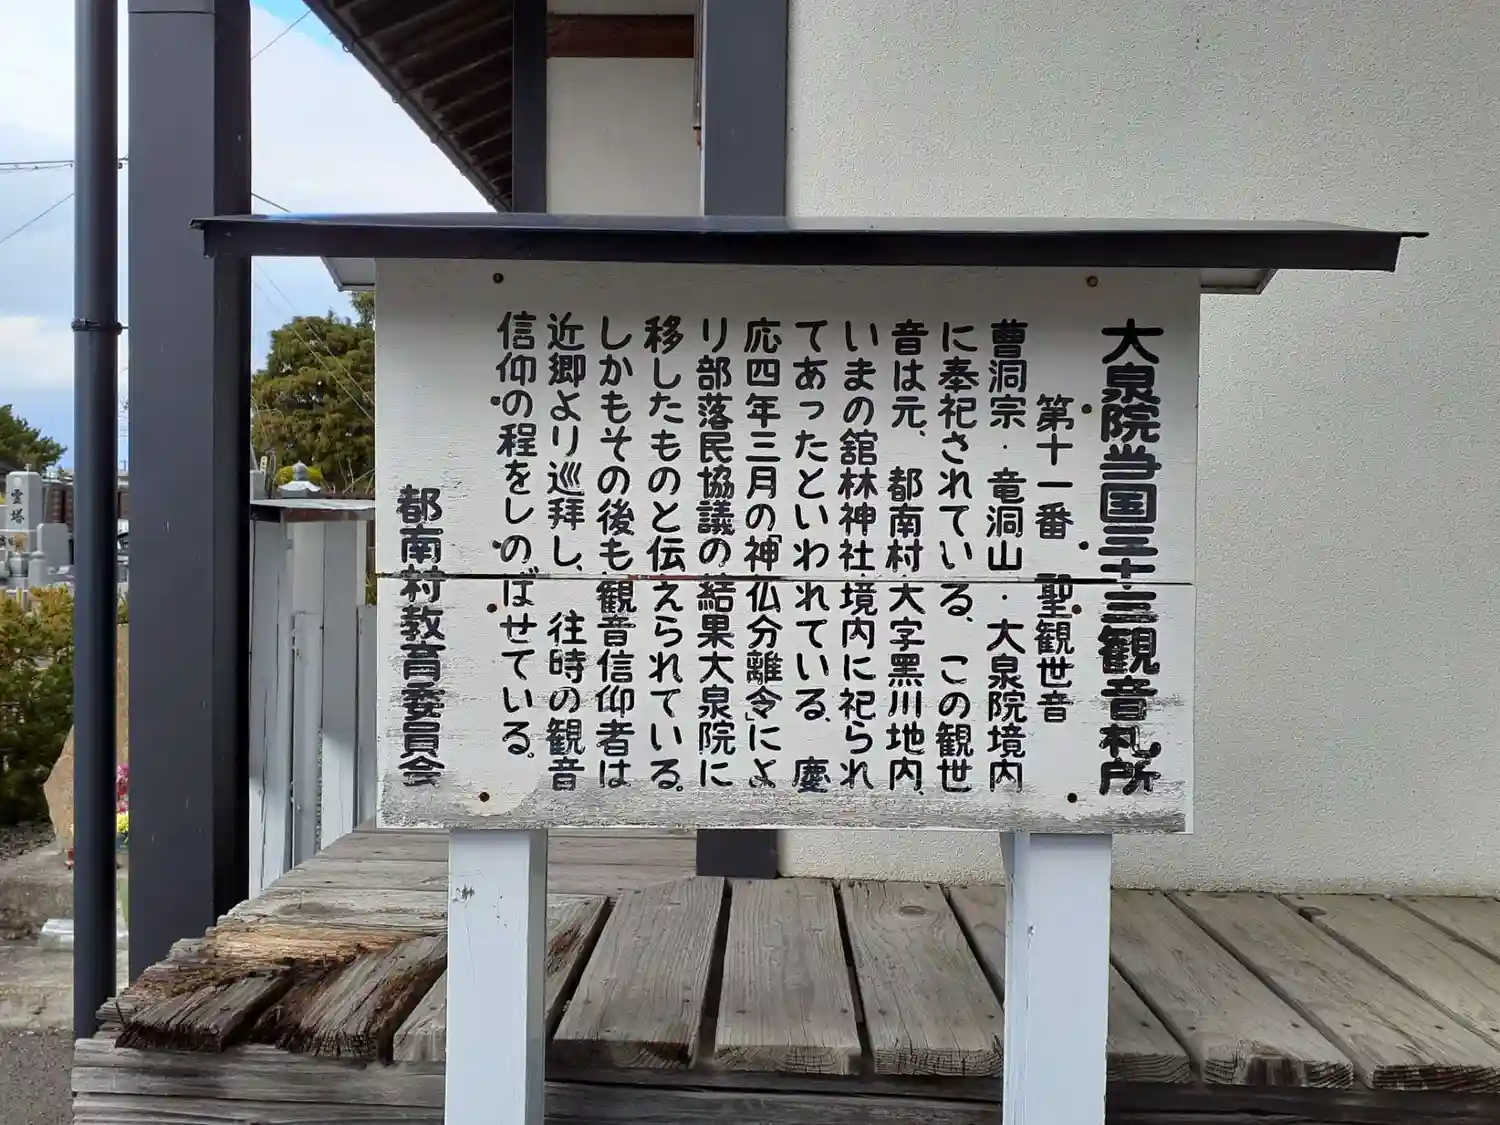 大泉院当国三十三観音札所
第十一番 聖観世音
曹洞宗・竜洞山・大泉院境内
に奉祀されている、この観世
音は元、都南村大字黒川地内、
いまの舘林神社境内に祀られ
てあったといわれている、慶
応四年三月の「神仏分離令」によ
り部落民協議の結果大泉院に
移したものと伝えられている。
しかもその後も観音信仰者は
近郷より巡拝し、往時の観音
信仰の程をしのばせている。
都南村教育委員会
霊塔